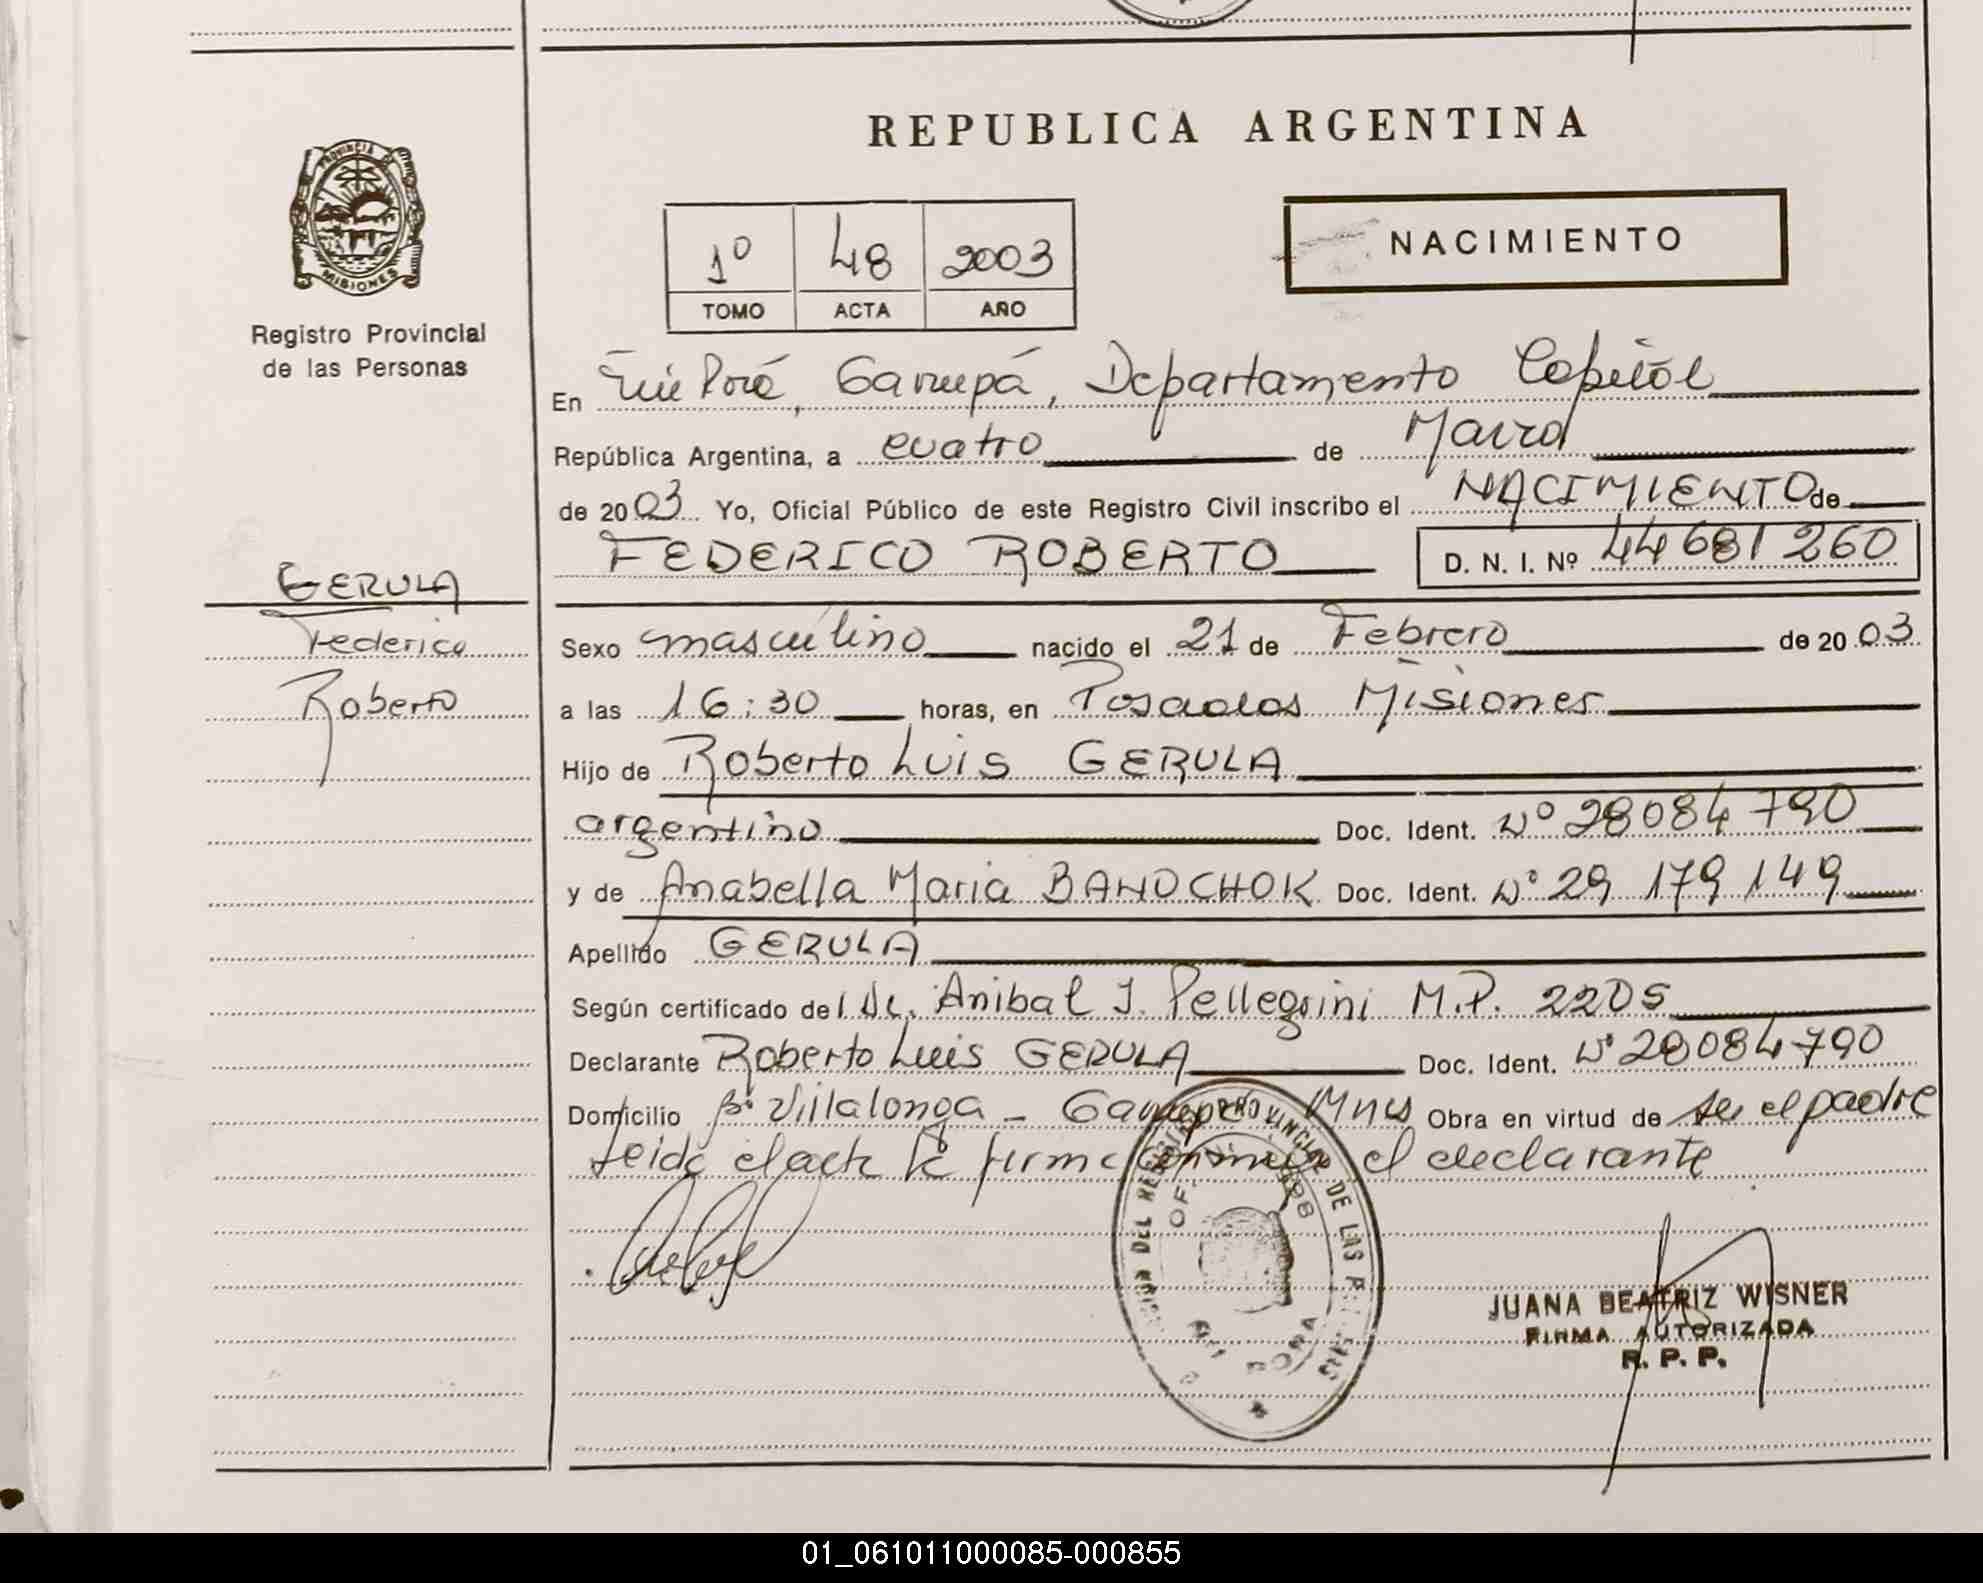 REPUBLICA ARGENTINA
PROVINCIA DE
MISIONES
Registro Provincial
de las Personas
1º 48 2003
TOMO ACTA AÑO
NACIMIENTO
En Garupá, Departamento Capital
República Argentina, a cuatro de Marzo
de 2003 Yo, Oficial Público de este Registro Civil inscribo el NACIMIENTO de
FEDERICO ROBERTO D. N. I. Nº 44681260
GERULA
Federico
Roberto
Sexo masculino nacido el 21 de Febrero de 2003
a las 16:30 horas, en Posadas Misiones
Hijo de Roberto Luis GERULA
argentino Doc. Ident. Nº 28084790
y de Anabella Maria BANOCHOK Doc. Ident. Nº 29 179 149
Apellido GERULA
Según certificado del Dr. Anibal J. Pellegrini M.P. 2205
Declarante Roberto Luis GERULA Doc. Ident. Nº 28084790
Domicilio Bº Villalonga - Garupá Mnes Obra en virtud de ser el padre
Leida el acta la firma conmigo el declarante
PROVINCIAL DE LAS
JUANA BEATRIZ WISNER
FIRMA AUTORIZADA
R. P. P.
01_061011000085-000855